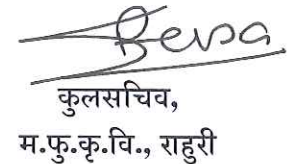 कुलसचिव,
म.फु.कृ.वि., राहुरी